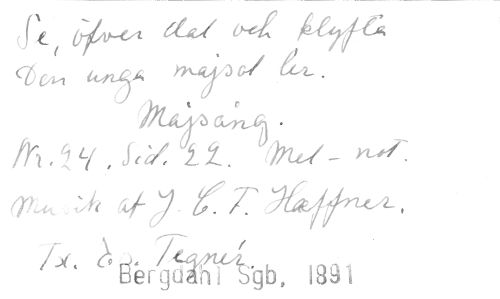 Se, öfver dal och klyfta
Den unga majsol ler.
Majsång.
Nr. 24. Sid. 22. Mel-not.
Musik af J. C. F. Hæffner.
Tx. Es. Tegnér.
Bergdahl Sgb. 1891